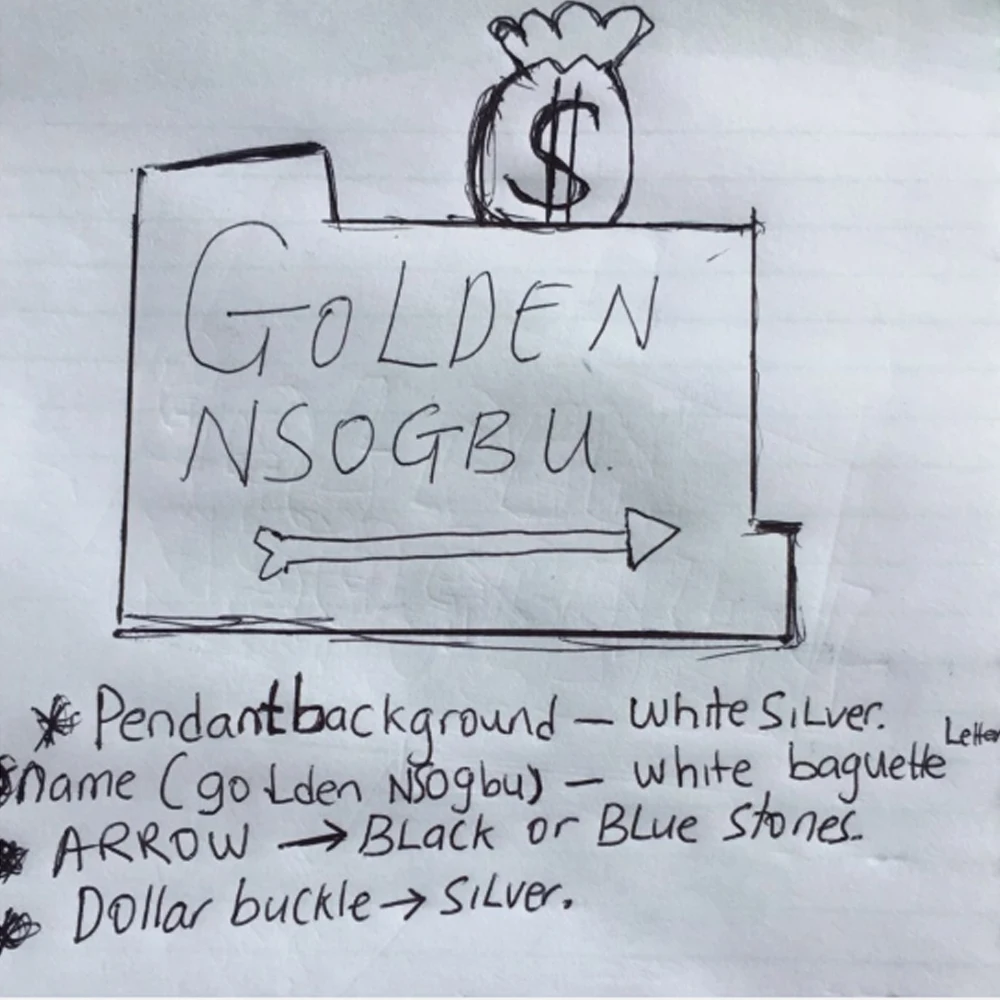 $
GOLDEN
NSOGBU.
* Pendant background – white SiLver.
name (goLden NSogbu) – white baguette Letter
ARROW → BLack or BLue stones.
Dollar buckle → SiLver.